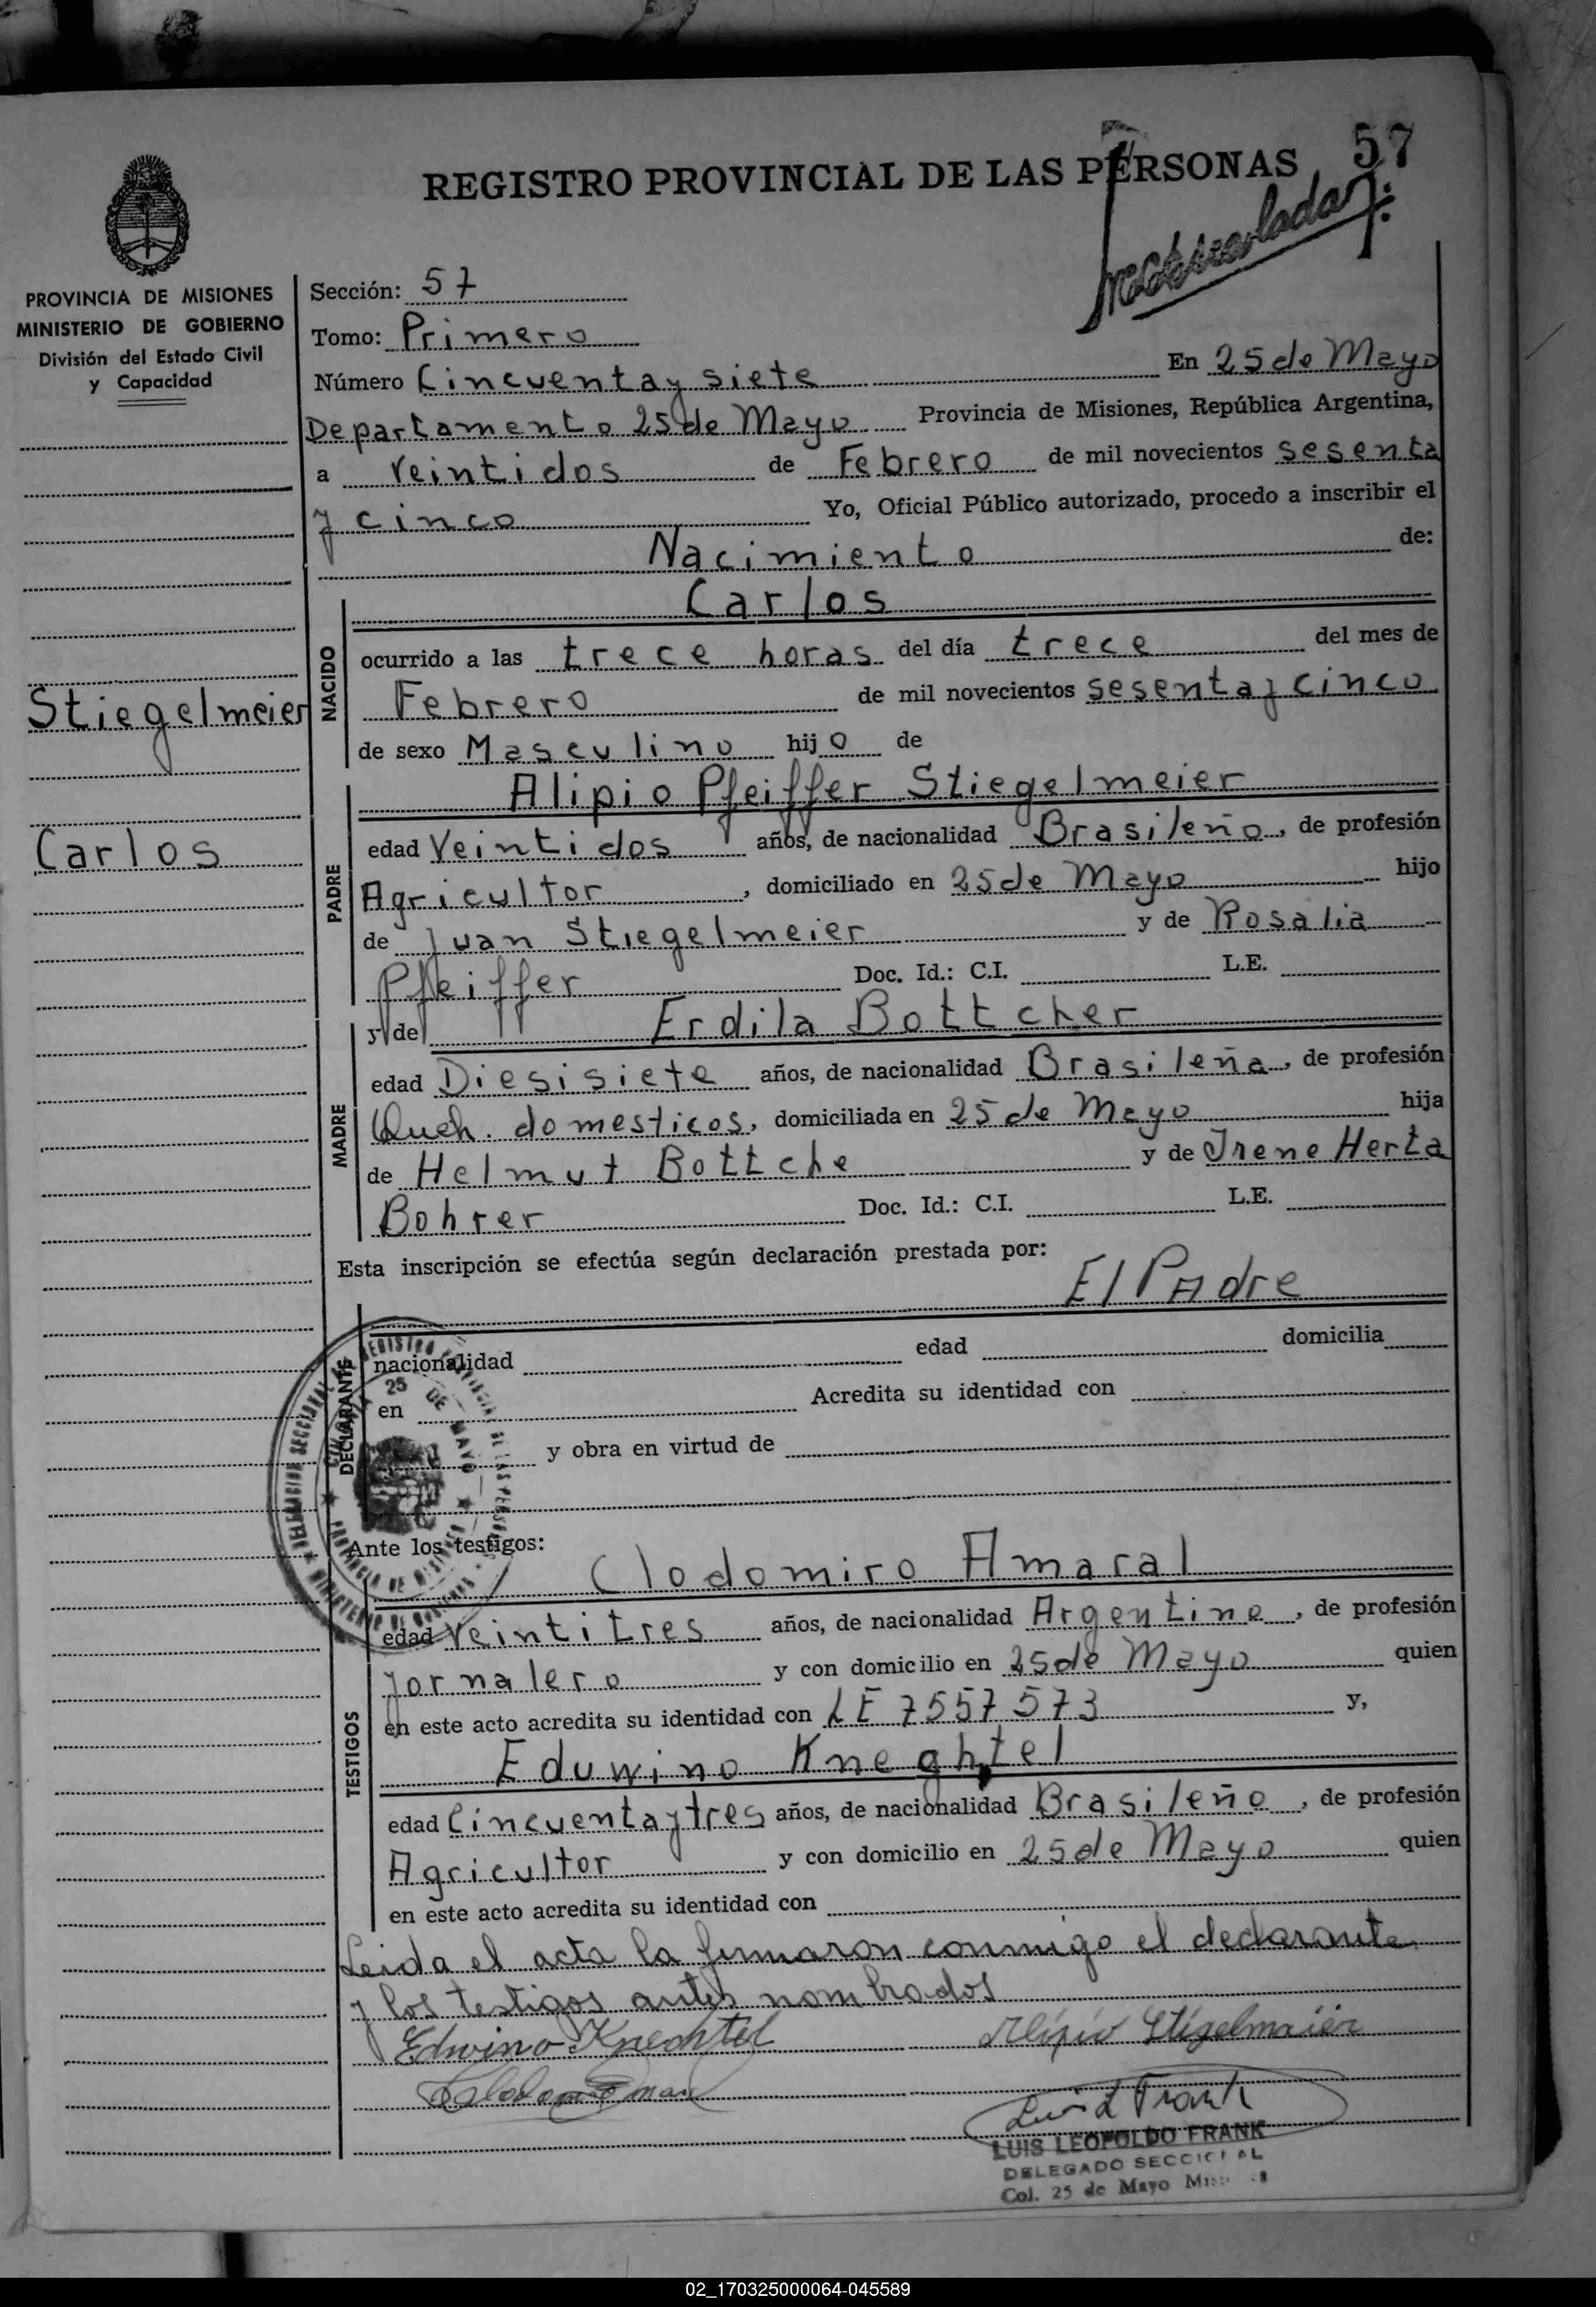 57
REGISTRO PROVINCIAL DE LAS PERSONAS
PROVINCIA DE MISIONES
MINISTERIO DE GOBIERNO
División del Estado Civil
y Capacidad
Stiegelmeier
Carlos
Sección: 57
Tomo: Primero
Número Cincuenta y siete En 25 de Mayo
Departamento 25 de Mayo Provincia de Misiones, República Argentina,
a veintidos de Febrero de mil novecientos sesenta
y cinco Yo, Oficial Público autorizado, procedo a inscribir el
Nacimiento de:
NACIDO
Carlos
ocurrido a las trece horas del día trece del mes de
Febrero de mil novecientos sesenta y cinco
de sexo Masculino hijo de
PADRE
Alipio Pfeiffer Stiegelmeier
edad Veintidos años, de nacionalidad Brasileño, de profesión
Agricultor, domiciliado en 25 de Mayo hijo
de Juan Stiegelmeier y de Rosalia
Pfeiffer Doc. Id.: C.I. L.E.
MADRE
y de Erdila Bottcher
edad Diesisiete años, de nacionalidad Brasileña, de profesión
Queh. domesticos, domiciliada en 25 de Mayo hija
de Helmut Bottche y de Irene Herta
Bohrer Doc. Id.: C.I. L.E.
Esta inscripción se efectúa según declaración prestada por:
El PAdre
DECLARANTE
nacionalidad edad domicilia
en Acredita su identidad con
y obra en virtud de
25 DE MAYO
Ante los testigos:
TESTIGOS
Clodomiro Amaral
edad veintitres años, de nacionalidad Argentino, de profesión
Jornalero y con domicilio en 25 de Mayo quien
en este acto acredita su identidad con LE 7557573 y,
Eduwino Kneghtel
edad Cincuenta y tres años, de nacionalidad Brasileño, de profesión
Agricultor y con domicilio en 25 de Mayo quien
en este acto acredita su identidad con
Leida el acta la firmaron conmigo el declarante
y los testigos antes nombrados
Edwino Knechtel Alipio Stigelmaiér
Luis L Frank
LUIS LEOPOLDO FRANK
DELEGADO SECCIONAL
Col. 25 de Mayo
02_170325000064-045589